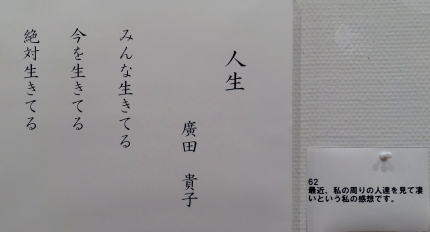 人生
廣田 貴子
みんな生きてる
今を生きてる
絶対生きてる
62
最近、私の周りの人達を見て凄
いという私の感想です。